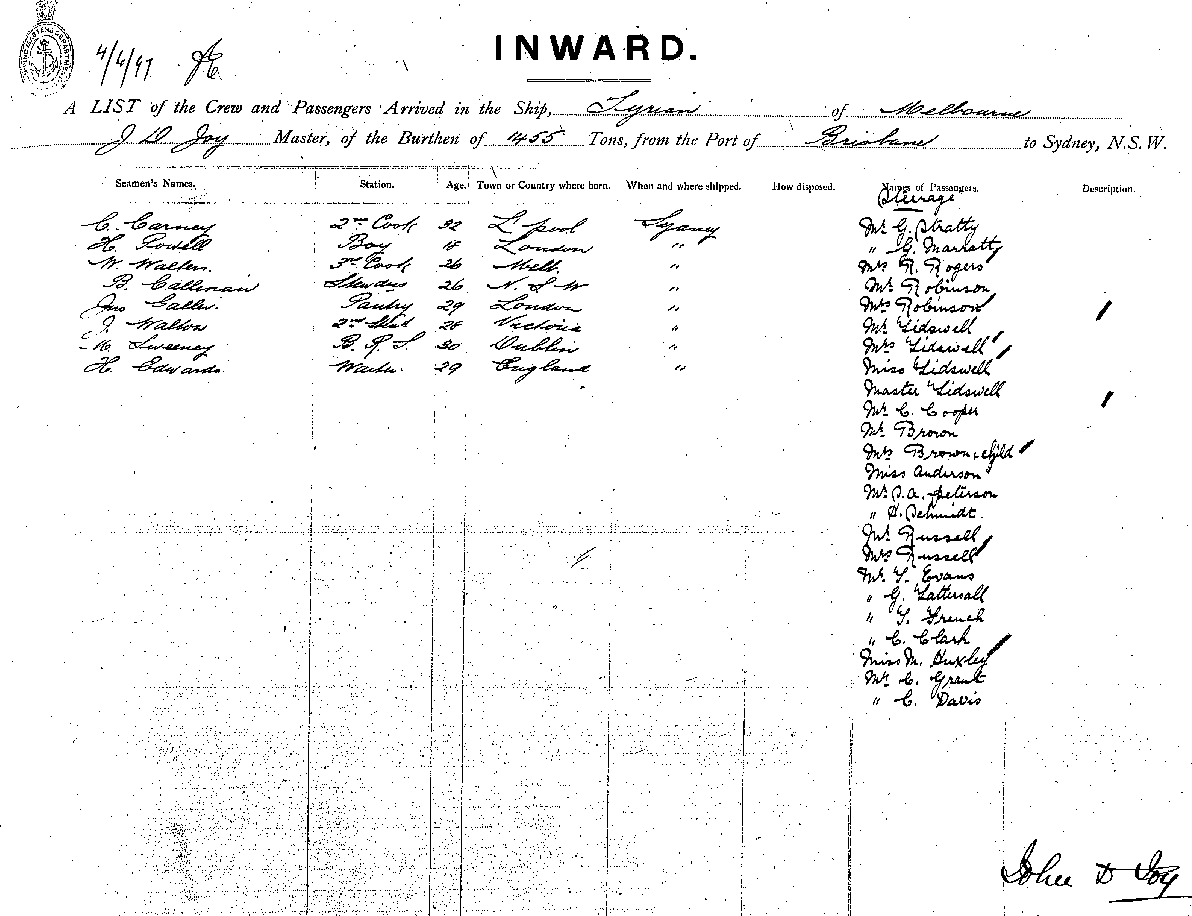 4/6/97
INWARD.
A LIST of the Crew and Passengers Arrived in the Ship, Tyrian of Melbourne
J D Joy Master, of the Burthen of 1455 Tons, from the Port of Brisbane to Sydney, N.S.W.
Seamen's Names. Station. Age. Town or Country where born. When and where shipped. How disposed. Names of Passengers. Description.
Steerage
C. Carney 2nd Cook 32 L'pool Sydney Mr G. Stratty
H. Powell Boy London " " G. Marratty
W. Walters. 3rd Cook 26 Melb. " Mrs R. Rogers
B. Callinan 26 N. S. W " Mr Robinson
Jno Pantry 29 London " Mrs Robinson
J. Walton 2nd Victoria " Mr Lidswell
M. Sweeney B. R. S. 30 Dublin " Mrs Lidswell
H. Edwards Waiter. 29 England " Miss Lidswell
Master Lidswell
Mr C. Cooper
Mr Brown
Mrs Brown & child
Miss Anderson
Mr P. A. Peterson
" H. Schmidt.
Mr Russell
Mrs Russell
Mr T. Evans
" G. Tattersall
" T. French
" C. Clark
Miss M. Huxley
Mr C. Grant
" C. Davis
John D Joy